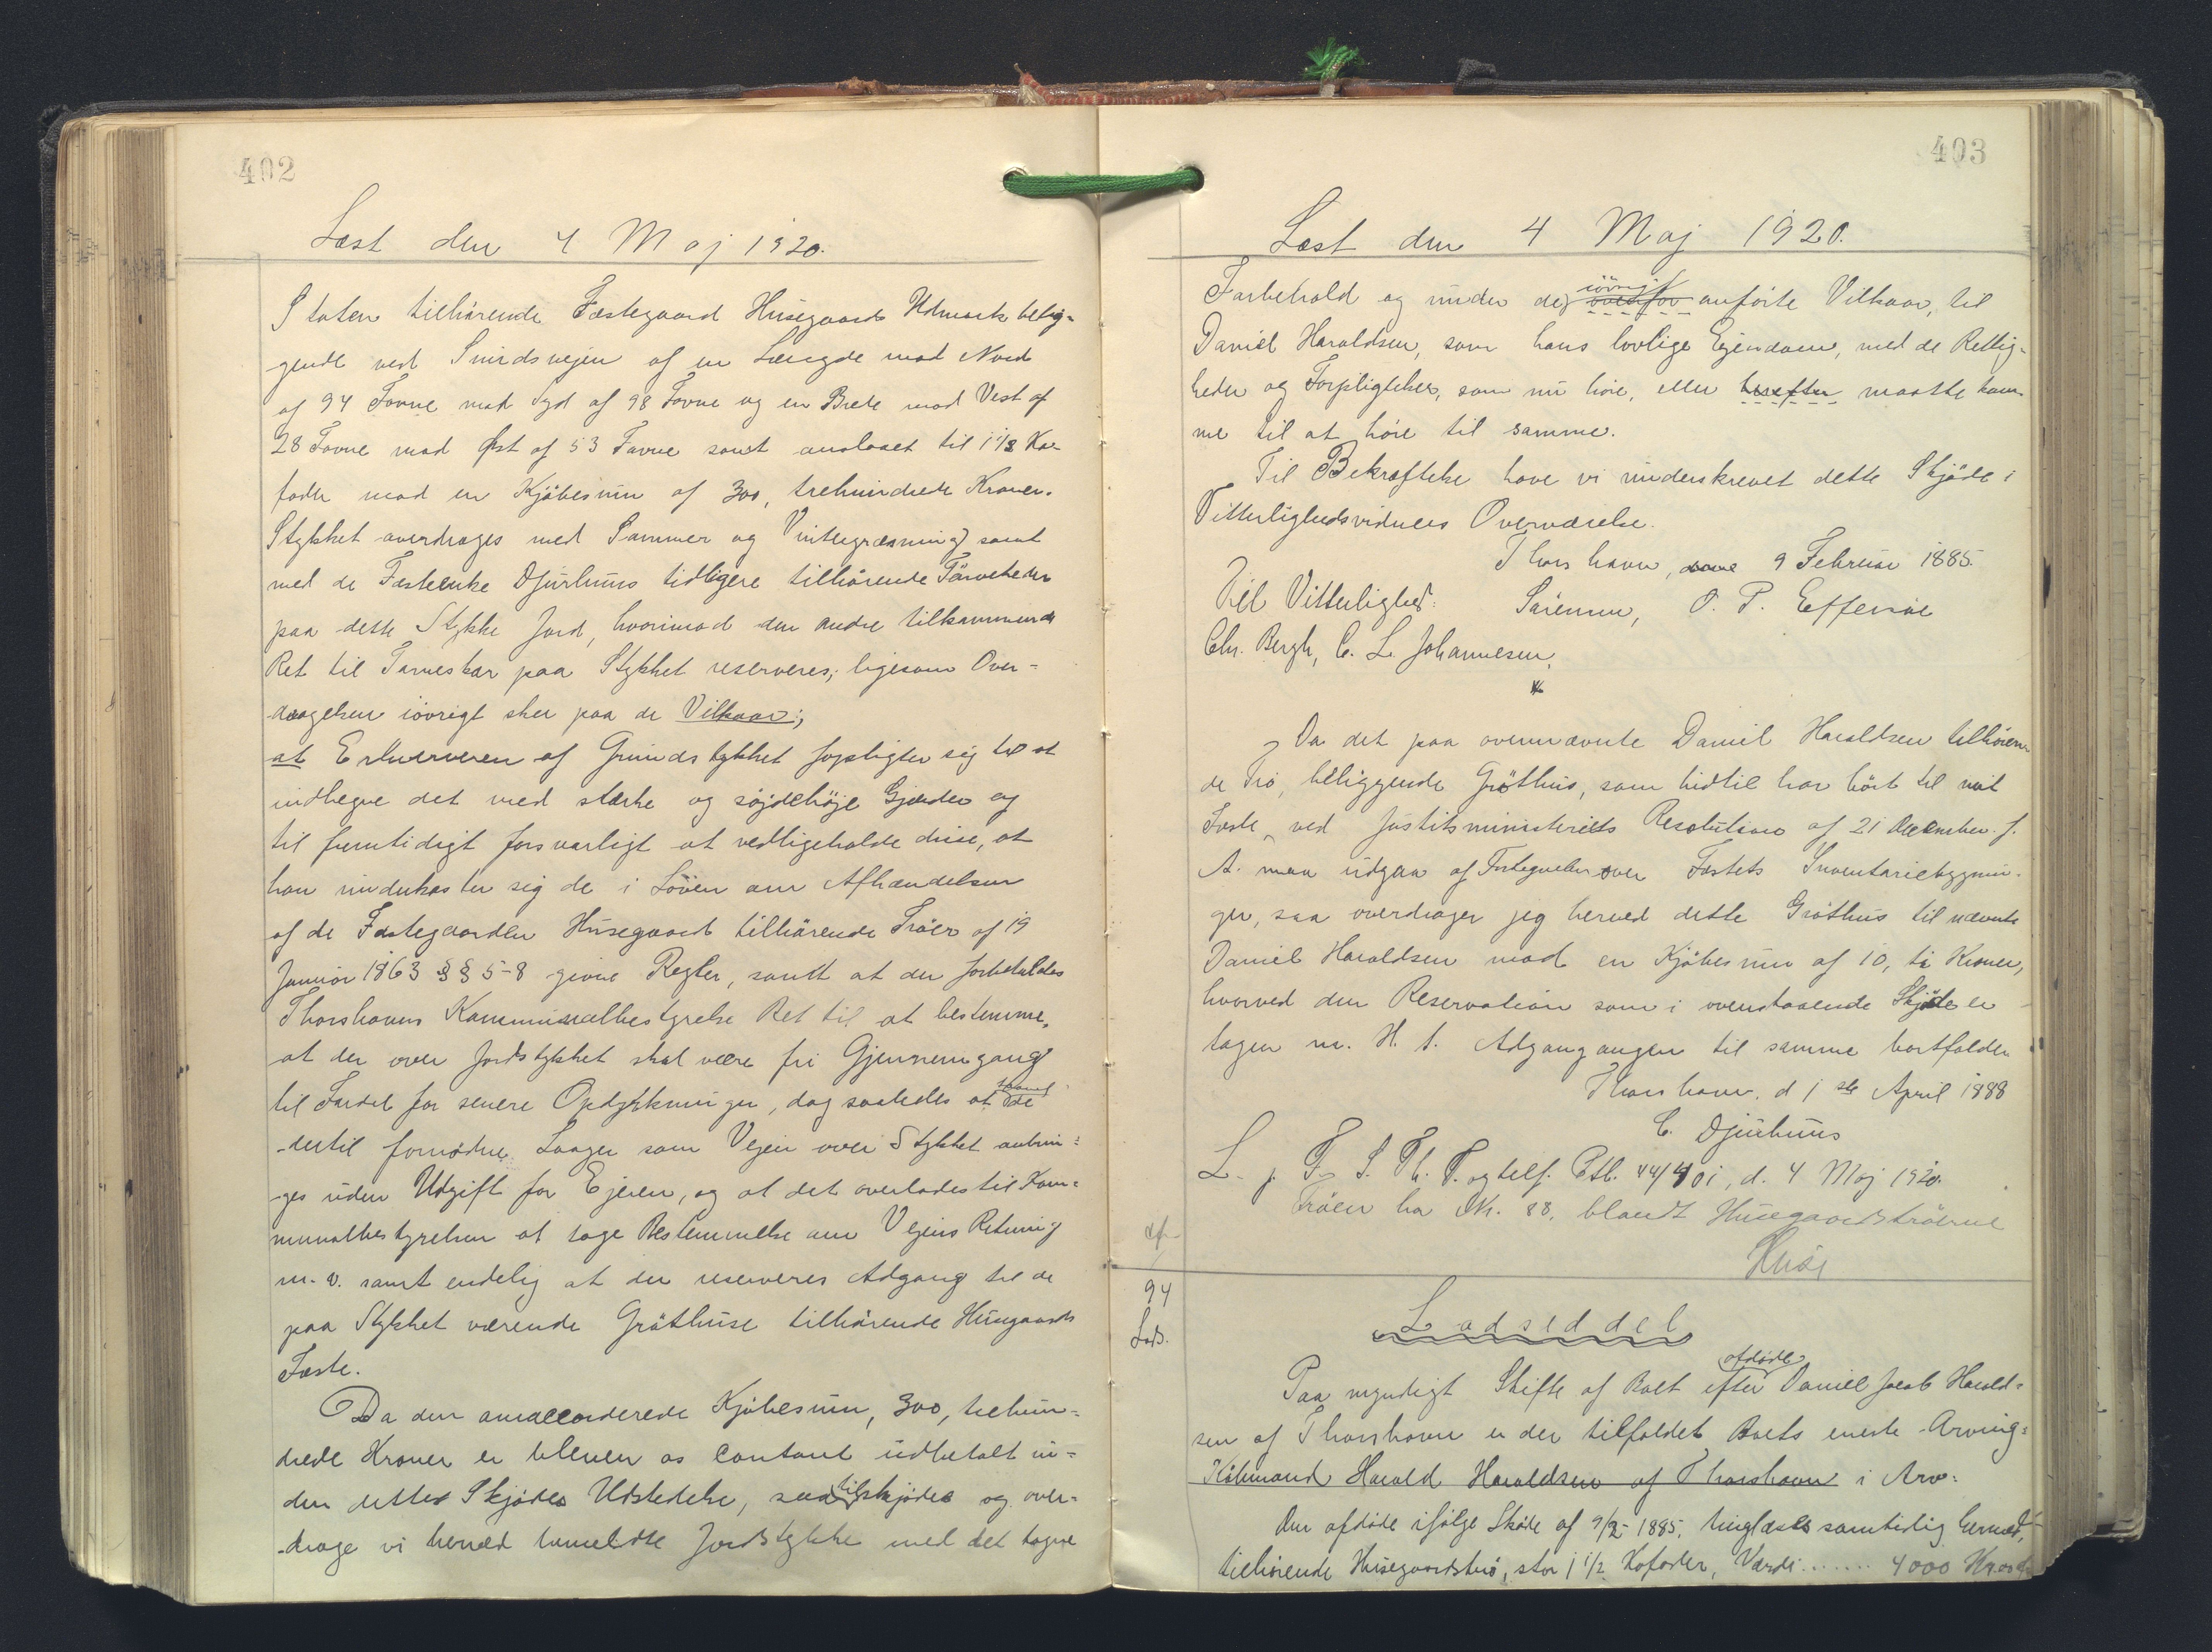 402
Læst den 4 Maj 1920.
Staten tilhørende Fæstegaard Húsegaards Udmark belig-
gende ved Smidsvejen af en Længde mod Nord
af 94 Favne mod Syd af 98 Favne og en Brede mod Vest af
28 Favne mod Øst af 53 Favne samt anslaaet til 1 1/2 Ko-
foder mod en Kjøbesum af 300, trehundrede Kroner.
Stykket overdrages med Sommer og Vintergræsning samt
med de Fæsteenke Djurhuus tidligere tilhørende Tørveheder
paa dette Stykke Jord, hvorimod den andre tilkommende
Ret til Tørveskær paa Stykket reserveres; ligesom Over-
dragelsen iøvrigt sker paa de Vilkaar;
at Erhververen af Grundstykket forpligter sig til at
indhegne det med stærke og søjdehøje Gjærder og
til fremtidigt forsvarligt at vedligeholde disse, at
han underkaster sig de i Loven om Afhændelsen
af de Fæstegaarden Húsegaard tilhørende Trøer af 19
Januar 1863 §§ 5-8 givne Regler, samt at der forbeholdes
Thorshavns Kommunalbestyrelse Ret til at bestemme,
at der over Jordstykket skal være fri Gjennemgang
til Fordel for senere Opdyrkninger, dog saaledes at saavel de
dertil fornødne Laager som Vejen over Stykket anbrin-
ges uden Udgift for Ejeren, og at det overlades til Kom-
munalbestyrelsen at tage Bestemmelse om Vejens Retning
m. v. samt endelig at der reserveres Adgang til de
paa Stykket værende Gróthúse tilhørende Húsegaards
Fæste.
Da den omaccorderede Kjøbesum, 300, trehun-
drede Kroner er bleven os contant udbetalt in-
den dettes Skjødes Udstedelse, saa tilskjøde og over-
drage vi herved bemeldte Jordstykke med det tagne
403
Læst den 4 Maj 1920.
Forbehold og under de iøvrigt ovenfor anførte Vilkaar, til
Daniel Haraldsen, som hans lovlige Ejendom, med de Rettig-
heder og Forpligtelser, som nu høre, eller herefter maatte kom-
me til at høre til samme.
Til Bekræftelse have vi underskrevet dette Skjøde i
Vitterlighedsvidners Overværelse.
Thorshavn, den 9 Februar 1885.
Til Vitterlighed: Sørensen, O. P. Effersøe
Chr. Bergh, C. L. Johannesen.
Da det paa ovennævnte Daniel Haraldsen tilhøren-
de Trø, beliggende Gróthús, som hidtil har hørt til mit
Fæste, ved Justitsministeriets Resolution af 21 December f.
A. maa udgaa af Fortegnelsen over Fæstets Inventariebygnin-
ger, saa overdrager jeg herved dette Gróthús til nævnte
Daniel Haraldsen mod en Kjøbesum af 10, ti Kroner,
hvorved den Reservation som i ovenstaaende Skjøde er
tagen m. H. t. Adgangangen til samme bortfalder.
Thorshavn, d 1 ste April 1888
C. Djurhuus
L. p. F. S. Th. T. og telf. Ptb. 44/401, d. 4 Maj 1920.
Trøen har Nr. 88, blandt Húsegaardstrøerne
94
Lods.
Lodseddel
Paa myndigt Skifte af Boet efter afdøde Daniel Jacob Harald-
sen af Thorshavn er der tilfaldet Boets eneste Arving:
Købmand Harald Haraldsen af Thorshavn i Arv:
Den afdøde ifølge Skøde af 9/2-1885, tinglæst samtidig hermed,
tilhørende Húsegaardstrø, stor 1 1/2 Kofoder, Værdi ....... 4000 Kr.